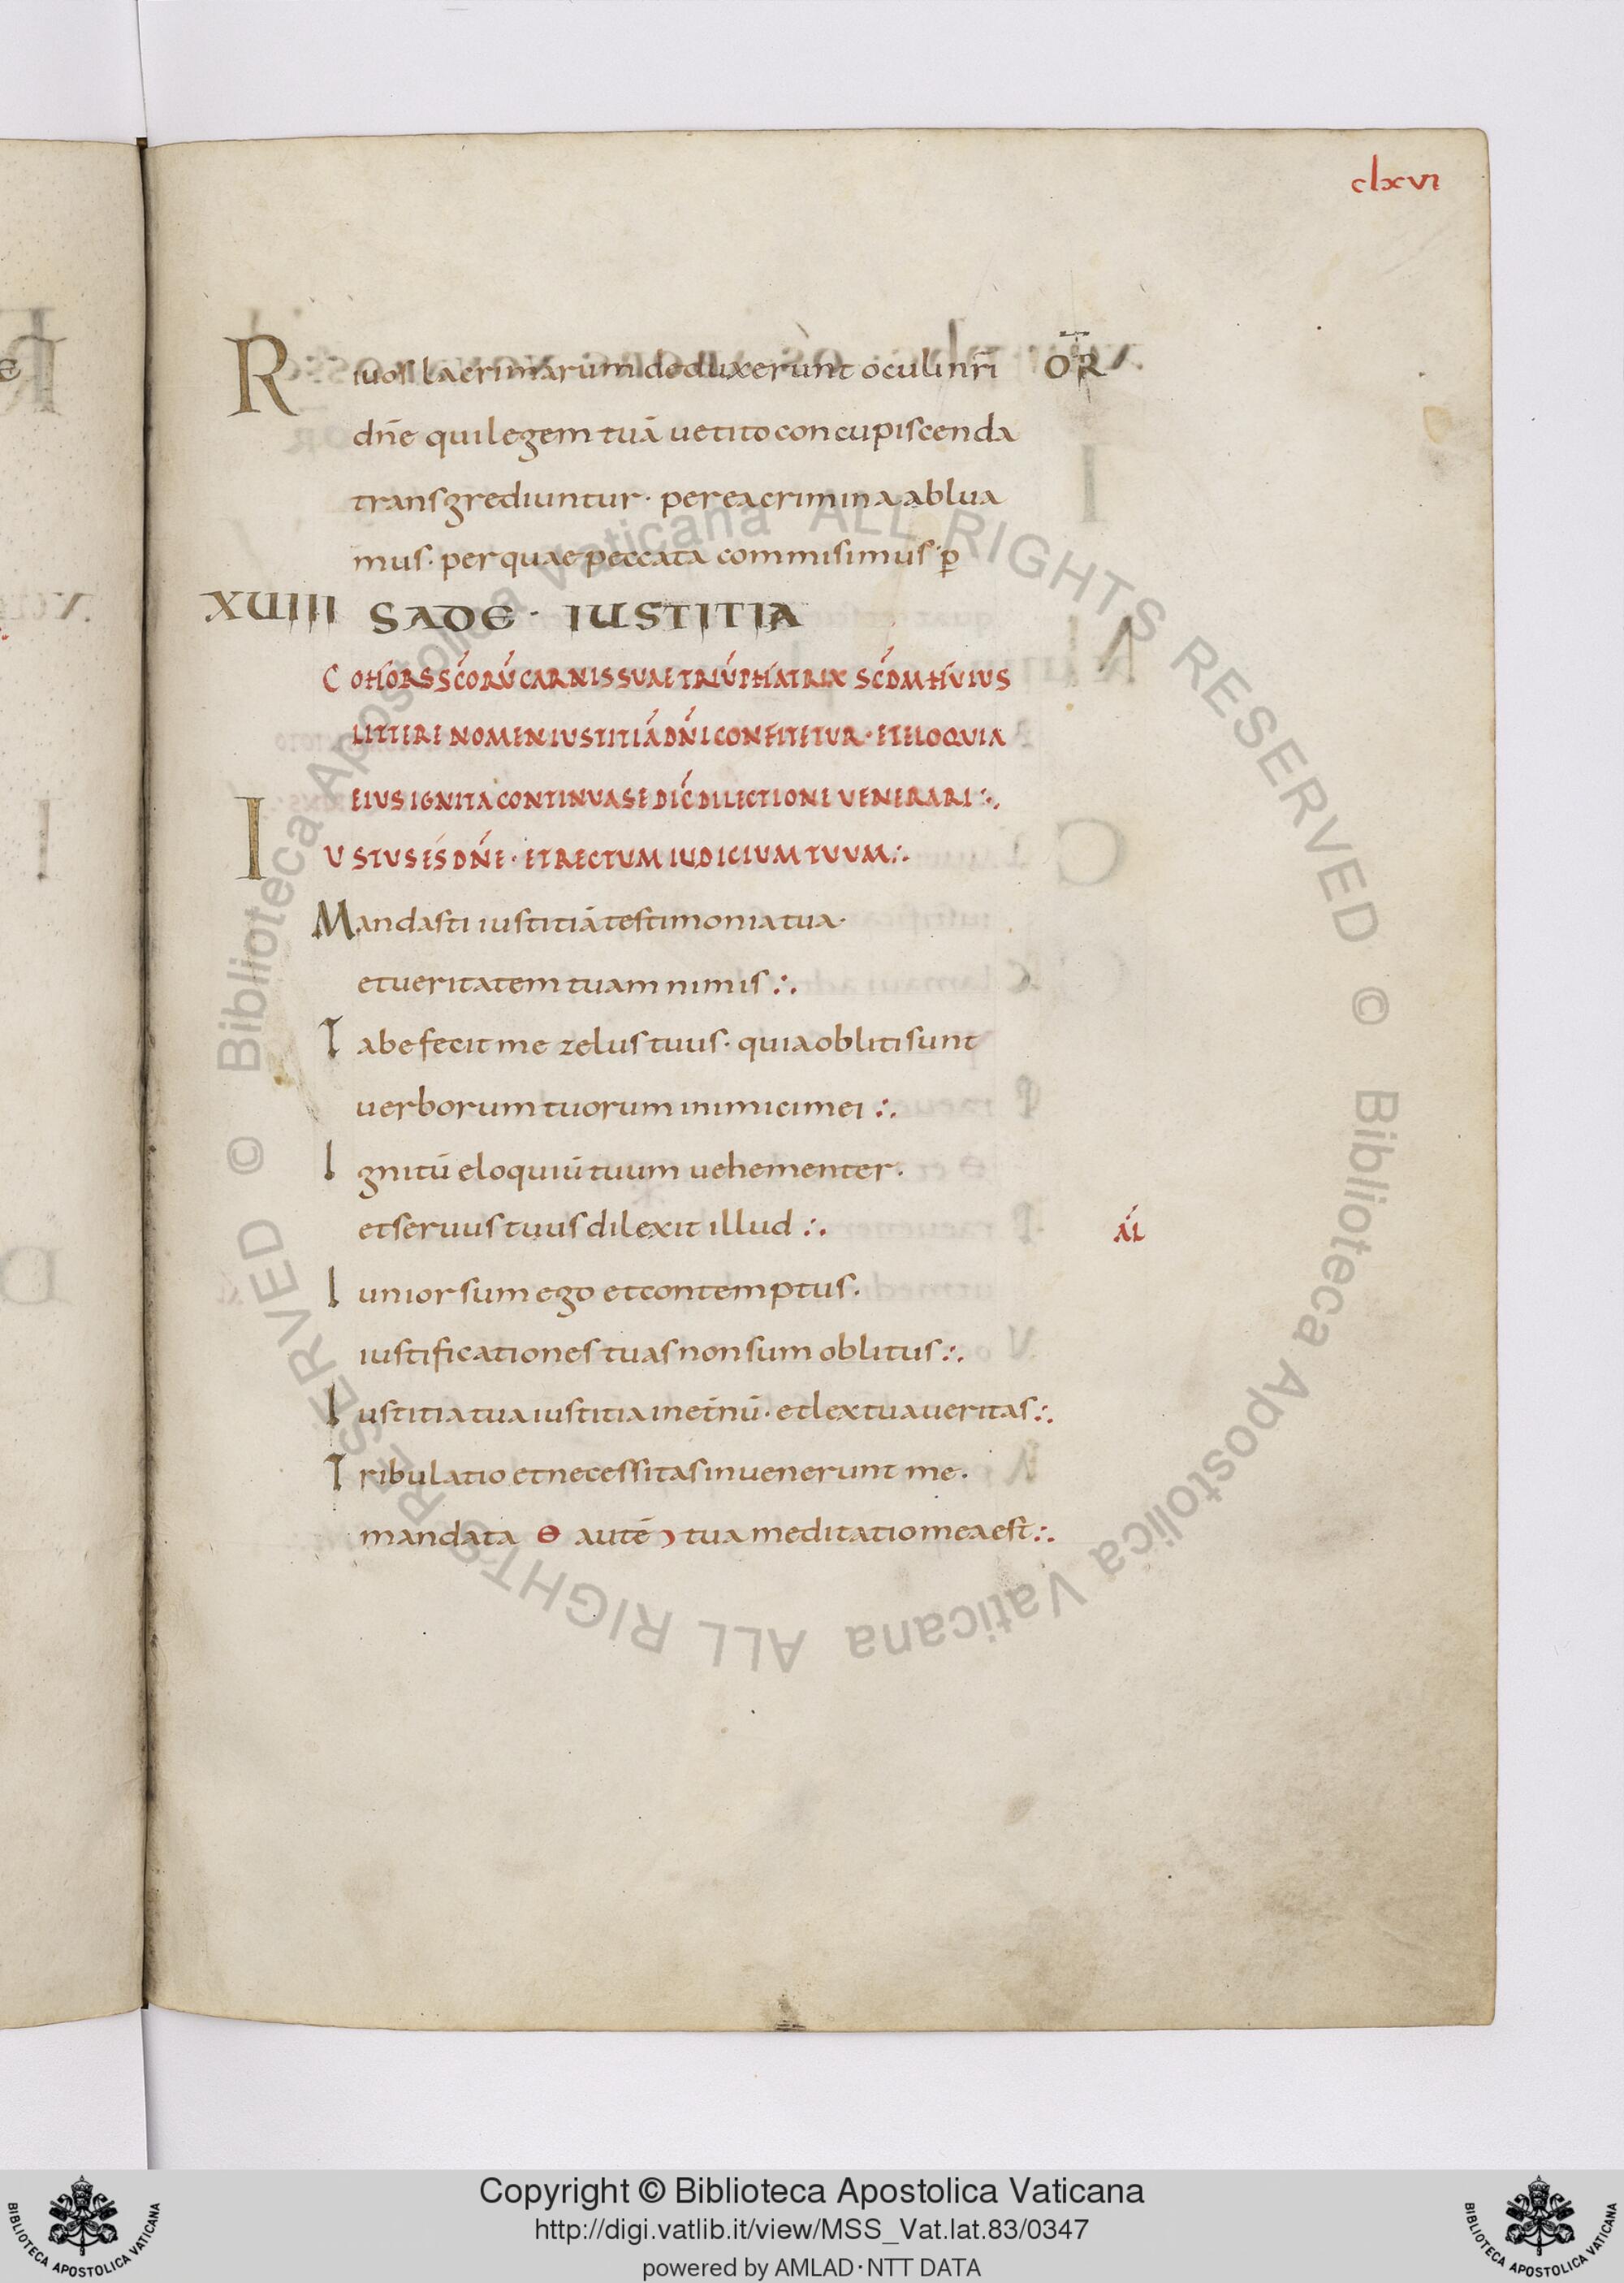 clxvi
Riuos lacrimarum deduxerunt oculi nr̄i OR̄
dn̄e qui legem tuā uetito concupiscenda
transgrediuntur · per ea crimina ablua
mus · per quae peccata commisimus · p̄
XUIIII SADE · IUSTITIA
COHORS SC̄ORŪ CARNIS SUAE TRIŪPHATRIX SC̄DM HUIUS
LITTERE NOMEN IUSTITIĀ DN̄I CONFITETUR · ET ELOQUIA
EIUS IGNITA CONTINUA SE DIC̄ DILECTIONE UENERARI :·
IUSTUS ES DN̄E · ET RECTUM IUDICIUM TUUM :·
Mandasti iustitiā testimonia tua ·
et ueritatem tuam nimis :·
Tabefecit me zelus tuus · quia obliti sunt
uerborum tuorum inimici mei :·
Ignitū eloquiū tuum uehementer ·
et seruus tuus dilexit illud :· AL̄
Iunior sum ego et contemptus ·
iustificationes tuas non sum oblitus :·
Iustitia tua iustitia in et̄nū · et lex tua ueritas :·
Tribulatio et necessitas inuenerunt me ·
mandata ɵ autē ꓽ tua meditatio mea est :·
© Biblioteca Apostolica Vaticana ALL RIGHTS RESERVED © Biblioteca Apostolica Vaticana ALL RIGHTS RESERVED
Copyright © Biblioteca Apostolica Vaticana
http://digi.vatlib.it/view/MSS_Vat.lat.83/0347
powered by AMLAD·NTT DATA
BIBLIOTECA APOSTOLICA VATICANA
BIBLIOTECA APOSTOLICA VATICANA